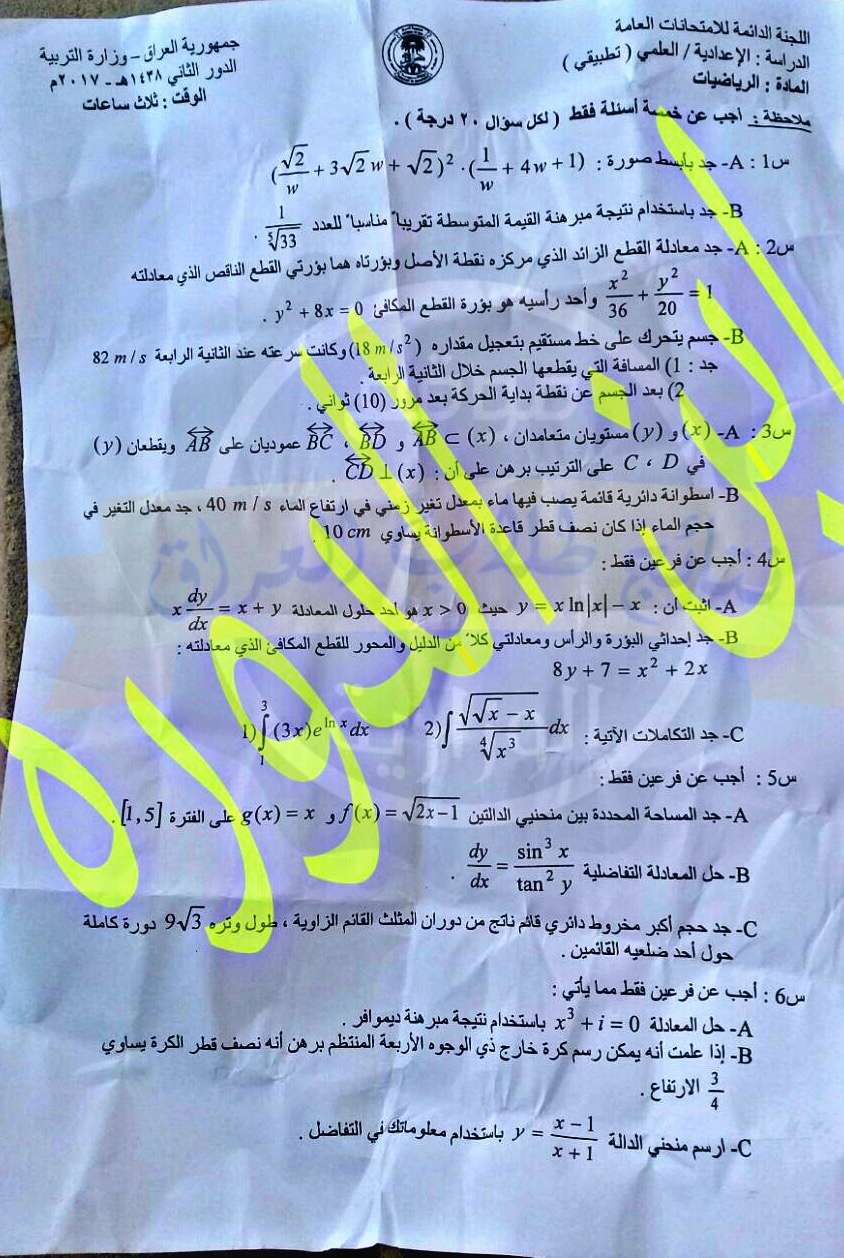 اللجنة الدائمة للامتحانات العامة
الدراسة : الإعدادية / العلمي ( تطبيقي )
المادة : الرياضيات
جمهورية العراق – وزارة التربية
الدور الثاني ١٤٣٨هـ - ٢٠١٧م
الوقت : ثلاث ساعات
ملاحظة : أجب عن خمسة أسئلة فقط ( لكل سؤال ٢٠ درجة ) .
س1 : A- جد بأبسط صورة : (√2/w + 3√2 w + √2)² · (1/w + 4w + 1)
B- جد باستخدام نتيجة مبرهنة القيمة المتوسطة تقريباً مناسباً للعدد 1/⁵√33 .
س2 : A- جد معادلة القطع الزائد الذي مركزه نقطة الأصل وبؤرتاه هما بؤرتي القطع الناقص الذي معادلته
x²/36 + y²/20 = 1 وأحد رأسيه هو بؤرة القطع المكافئ y² + 8x = 0 .
B- جسم يتحرك على خط مستقيم بتعجيل مقداره (18 m/s²) وكانت سرعته عند الثانية الرابعة 82 m/s
جد : 1) المسافة التي يقطعها الجسم خلال الثانية الرابعة .
2) بعد الجسم عن نقطة بداية الحركة بعد مرور (10) ثواني .
س3 : A- (x) و (y) مستويان متعامدان ، AB ⊂ (x) و BD ، BC عموديان على AB ويقطعان (y)
في C ، D على الترتيب برهن على أن : CD ⊥ (x) .
B- اسطوانة دائرية قائمة يصب فيها ماء بمعدل تغير زمني في ارتفاع الماء 40 m / s ، جد معدل التغير في
حجم الماء إذا كان نصف قطر قاعدة الأسطوانة يساوي 10 cm .
س4 : أجب عن فرعين فقط :
A- اثبت أن : y = x ln|x| − x حيث x > 0 هو أحد حلول المعادلة x dy/dx = x + y
B- جد إحداثي البؤرة والرأس ومعادلتي كلاً من الدليل والمحور للقطع المكافئ الذي معادلته :
8y + 7 = x² + 2x
C- جد التكاملات الآتية : 1) ∫₁³ (3x)e^{ln x} dx 2) ∫ √(√x − x)/⁴√x³ dx
س5 : أجب عن فرعين فقط :
A- جد المساحة المحددة بين منحنيي الدالتين f(x) = √(2x−1) و g(x) = x على الفترة [1,5] .
B- حل المعادلة التفاضلية dy/dx = sin³ x/tan² y .
C- جد حجم أكبر مخروط دائري قائم ناتج من دوران المثلث القائم الزاوية ، طول وتره 9√3 دورة كاملة
حول أحد ضلعيه القائمين .
س6 : أجب عن فرعين فقط مما يأتي :
A- حل المعادلة x³ + i = 0 باستخدام نتيجة مبرهنة ديموافر .
B- إذا علمت أنه يمكن رسم كرة خارج ذي الوجوه الأربعة المنتظم برهن أنه نصف قطر الكرة يساوي
3/4 الارتفاع .
C- ارسم منحني الدالة y = (x − 1)/(x + 1) باستخدام معلوماتك في التفاضل .
ابن الدوره